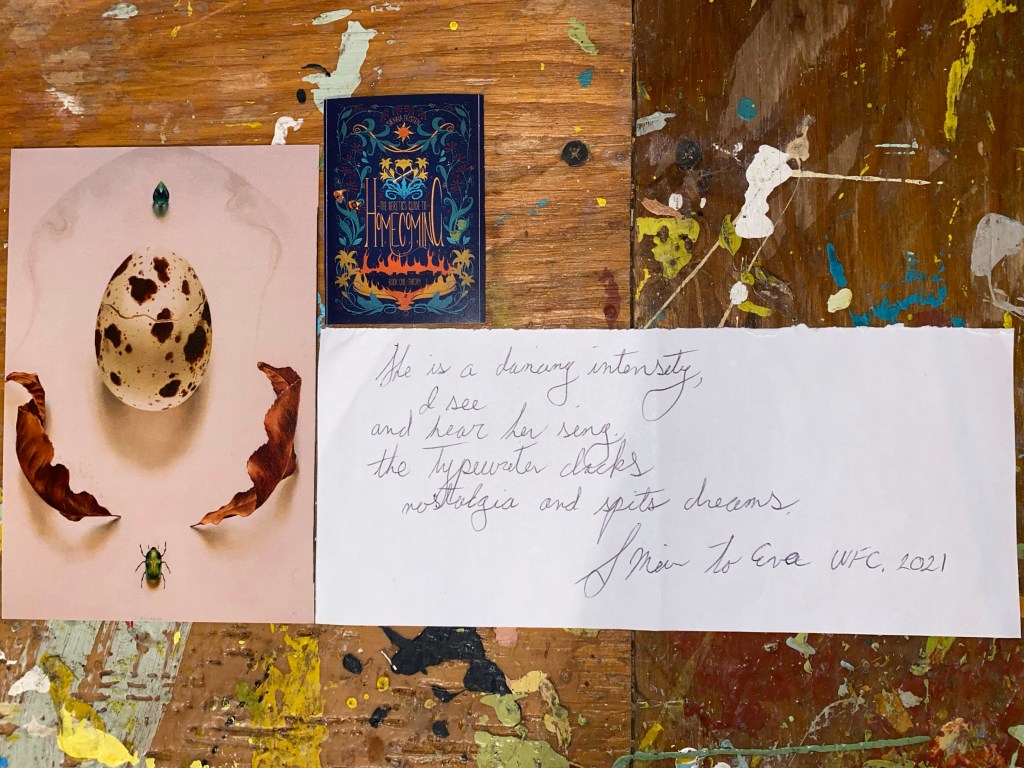 THE HERETIC'S GUIDE TO
HOMECOMING
BOOK ONE: THEORY
She is a dancing intensity,
I see
and hear her sing.
the Typewriter clacks
nostalgia and spits dreams.
to Eva WFC, 2021